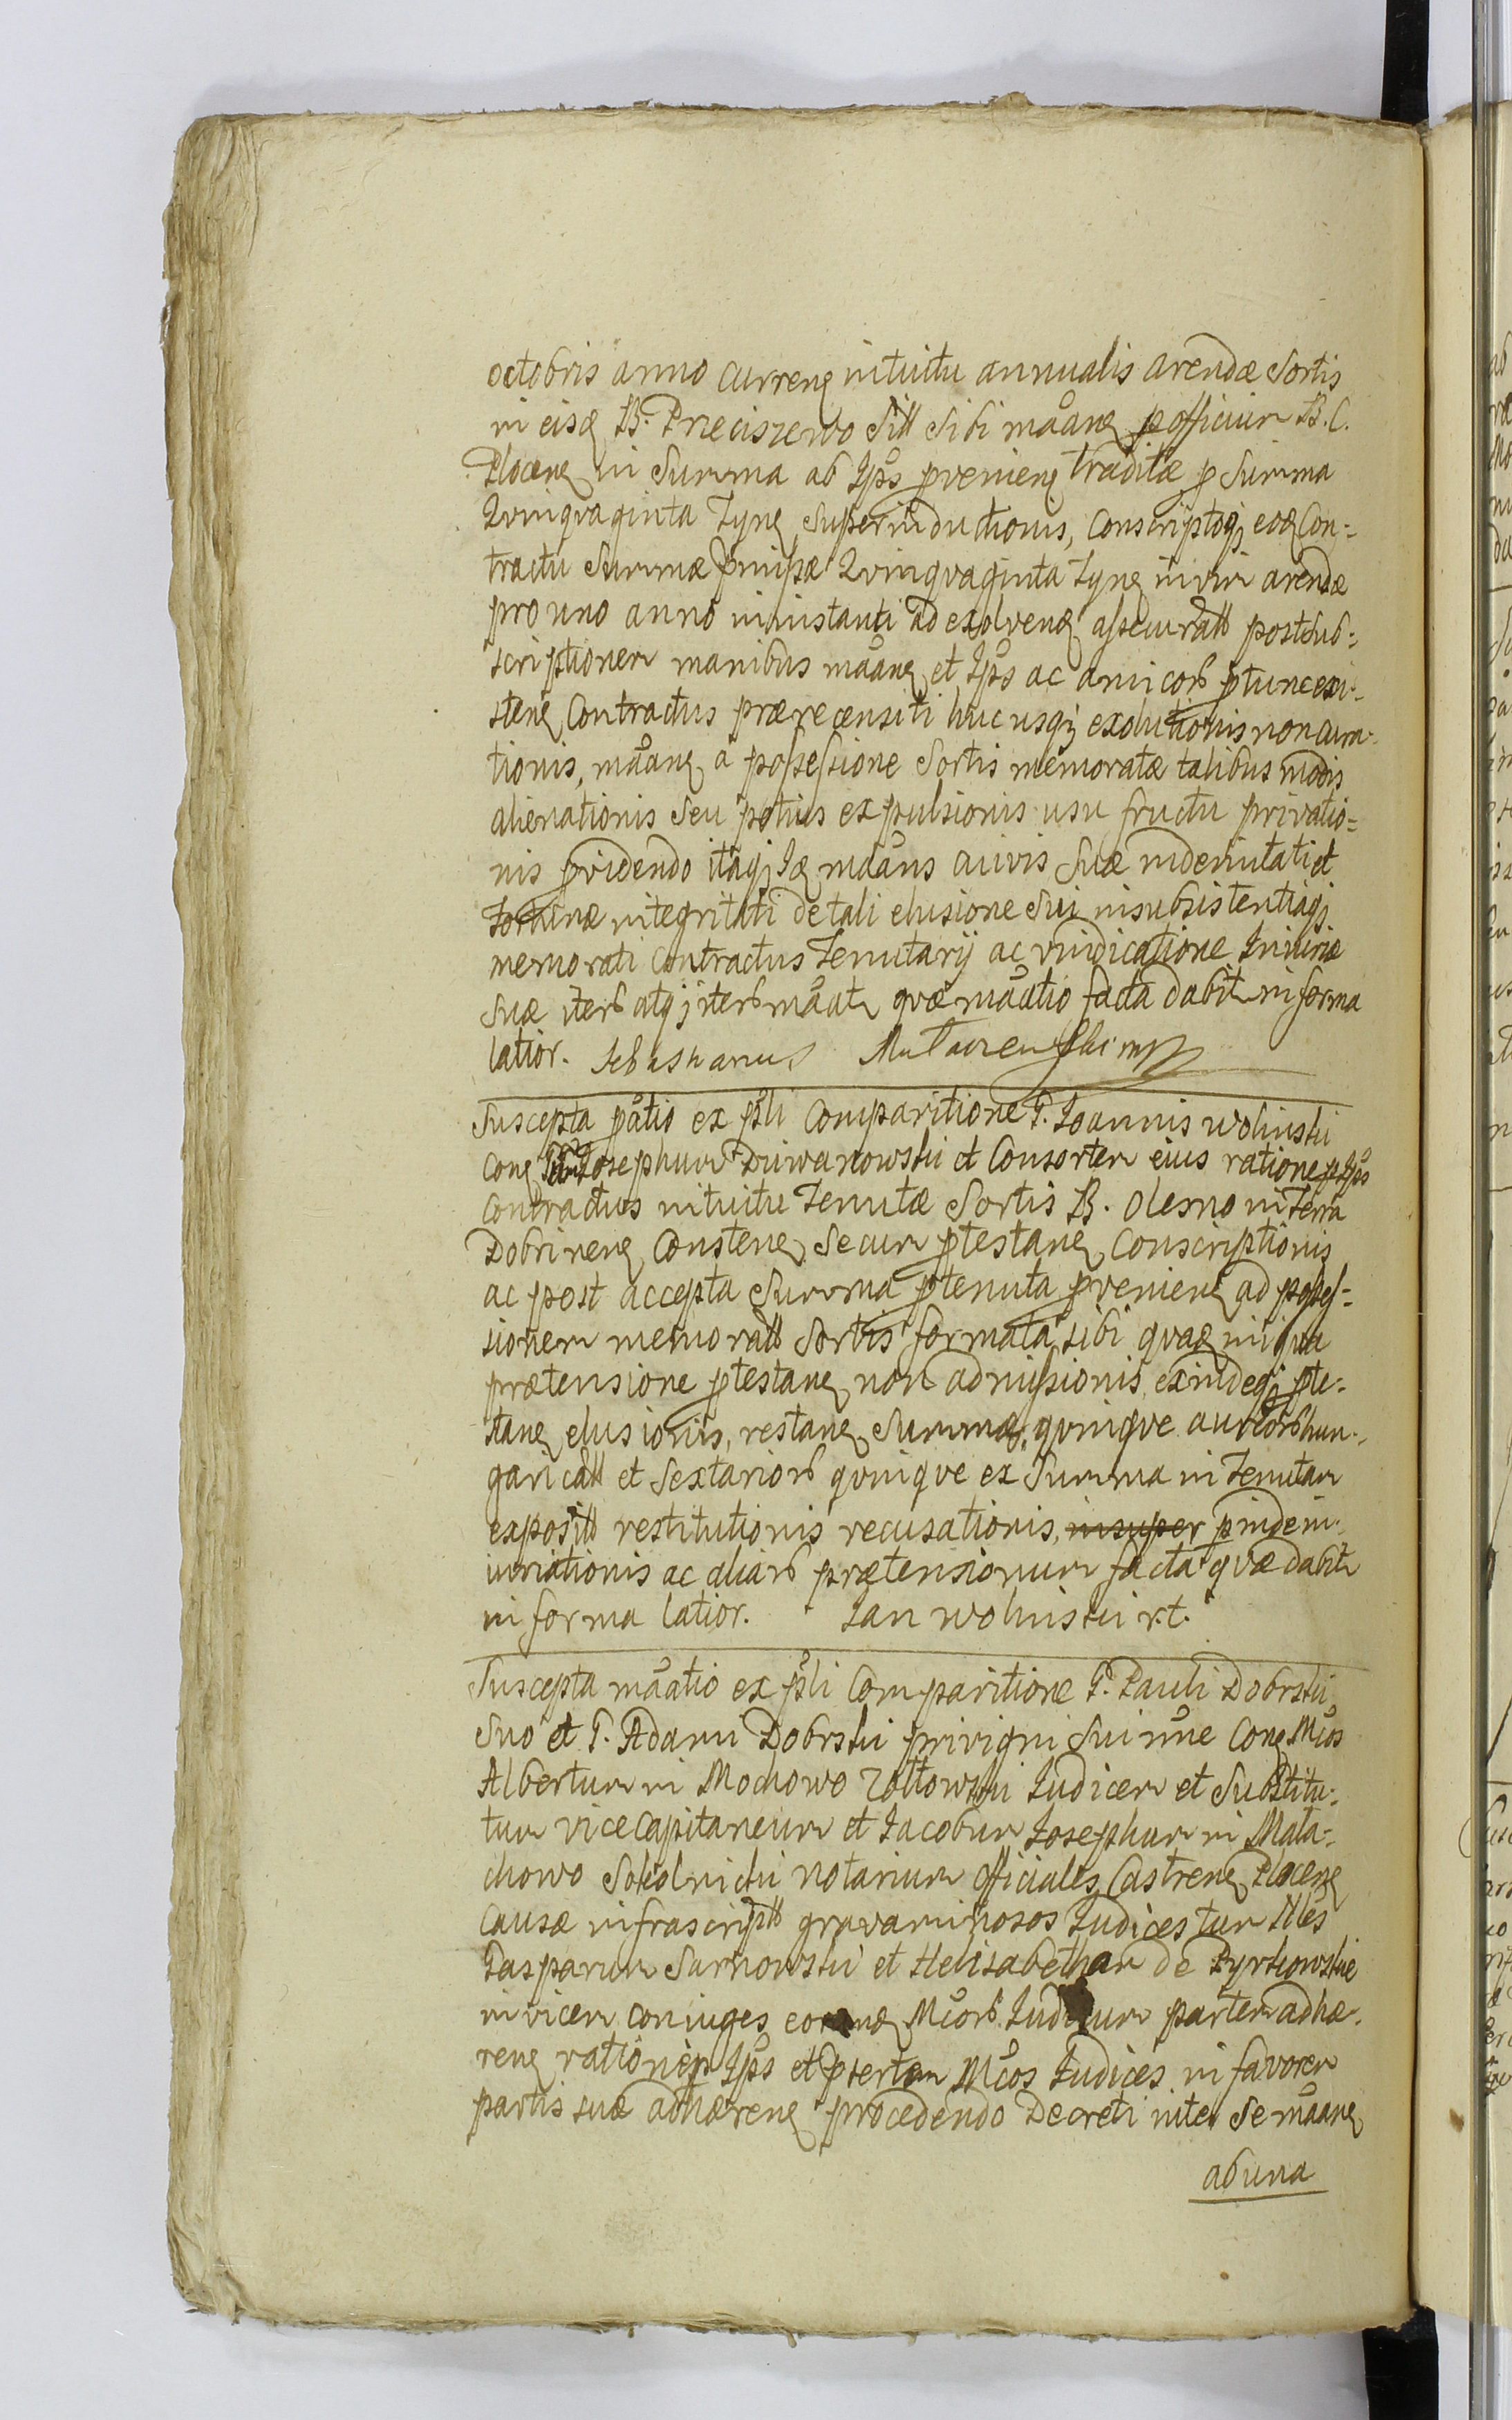 octobris anno curren intuitu annualis arendæ Sortis
in eisd B. Preciszewo Sitt sibi mãan p officium B. C.
Plocen in Summa ab Ips provenien traditæ p Summa
Quinquaginta Tyn superinductionis, Conscriptoq eod Con=
tractu Summæ pmissæ Quinquaginta Tyn in vim arendæ
pro uno anno in instanti ad exolvend assecuratt post sub=
scriptionem manibus mãan et Ips ac amicorb ptunc exi=
sten Contractus prærecensiti huc usq exolutionis non cura=
tionis, mãan a possessione Sortis memoratæ talibus modis
alienationis Seu potius expulsionis usu fructu privatio=
nis pvidendo itaq Id mãans avivis Suæ indemnitati et
fortunæ integritati de tali elusione Sui insubsistentiaq
memorati Contractus Tenutarij ac vindicatione Iniuriæ
Suæ iterb atq iterb mãatr quæ mãatio facta dabitr in forma
latior. Sebastianus
Suscepta pãtio ex psli Comparitione G. Joannis Wolinski
Con Josephum Duwanowski et Consortem eius ratione p Ips
Contractus intuitu Tenutæ Sortis B. Olesno in Terra
Dobrinen Consten Secum ptestan Conscriptionis
ac post accepta Summa p tenuta provenien ad posses=
sionem memoratt Sortis formata sibi quad iniqua
prætensione ptestan non admissionis exindeq pte=
stan elusionis, restan Summæ, quinque aureorb hun=
garicatt et Sextariorb quinque ex Summa in Tenutam
expositt restitutionis recusationis, insuper pindem=
iuriationis ac aliarb prætensionum facta quæ dabitr
in forma latior. Jan Wolinski r.t.
Suscepta mãatio ex psli Comparitione G. Pauli Dobrski
Suo et G. Adami Dobrski privigni Sui nne Con Mcos
Albertum in Mochowo Zołtowski Judicem et Substitu=
tum vice Capitaneum et Jacobum Josephum in Mala=
chowo Sokolnicki notarium officiales Castren Plocen
Causæ infrascriptt gravaminosos Judices tum Nles
Gasparum Sarnowski et Helisabetham de
invicem coniuges Mcorb Judicum partem adhæ=
ren ratione p Ips et psertem Mcos Judices in favorem
partis suæ adhæren procedendo Decreti inter Se mãan
ab una